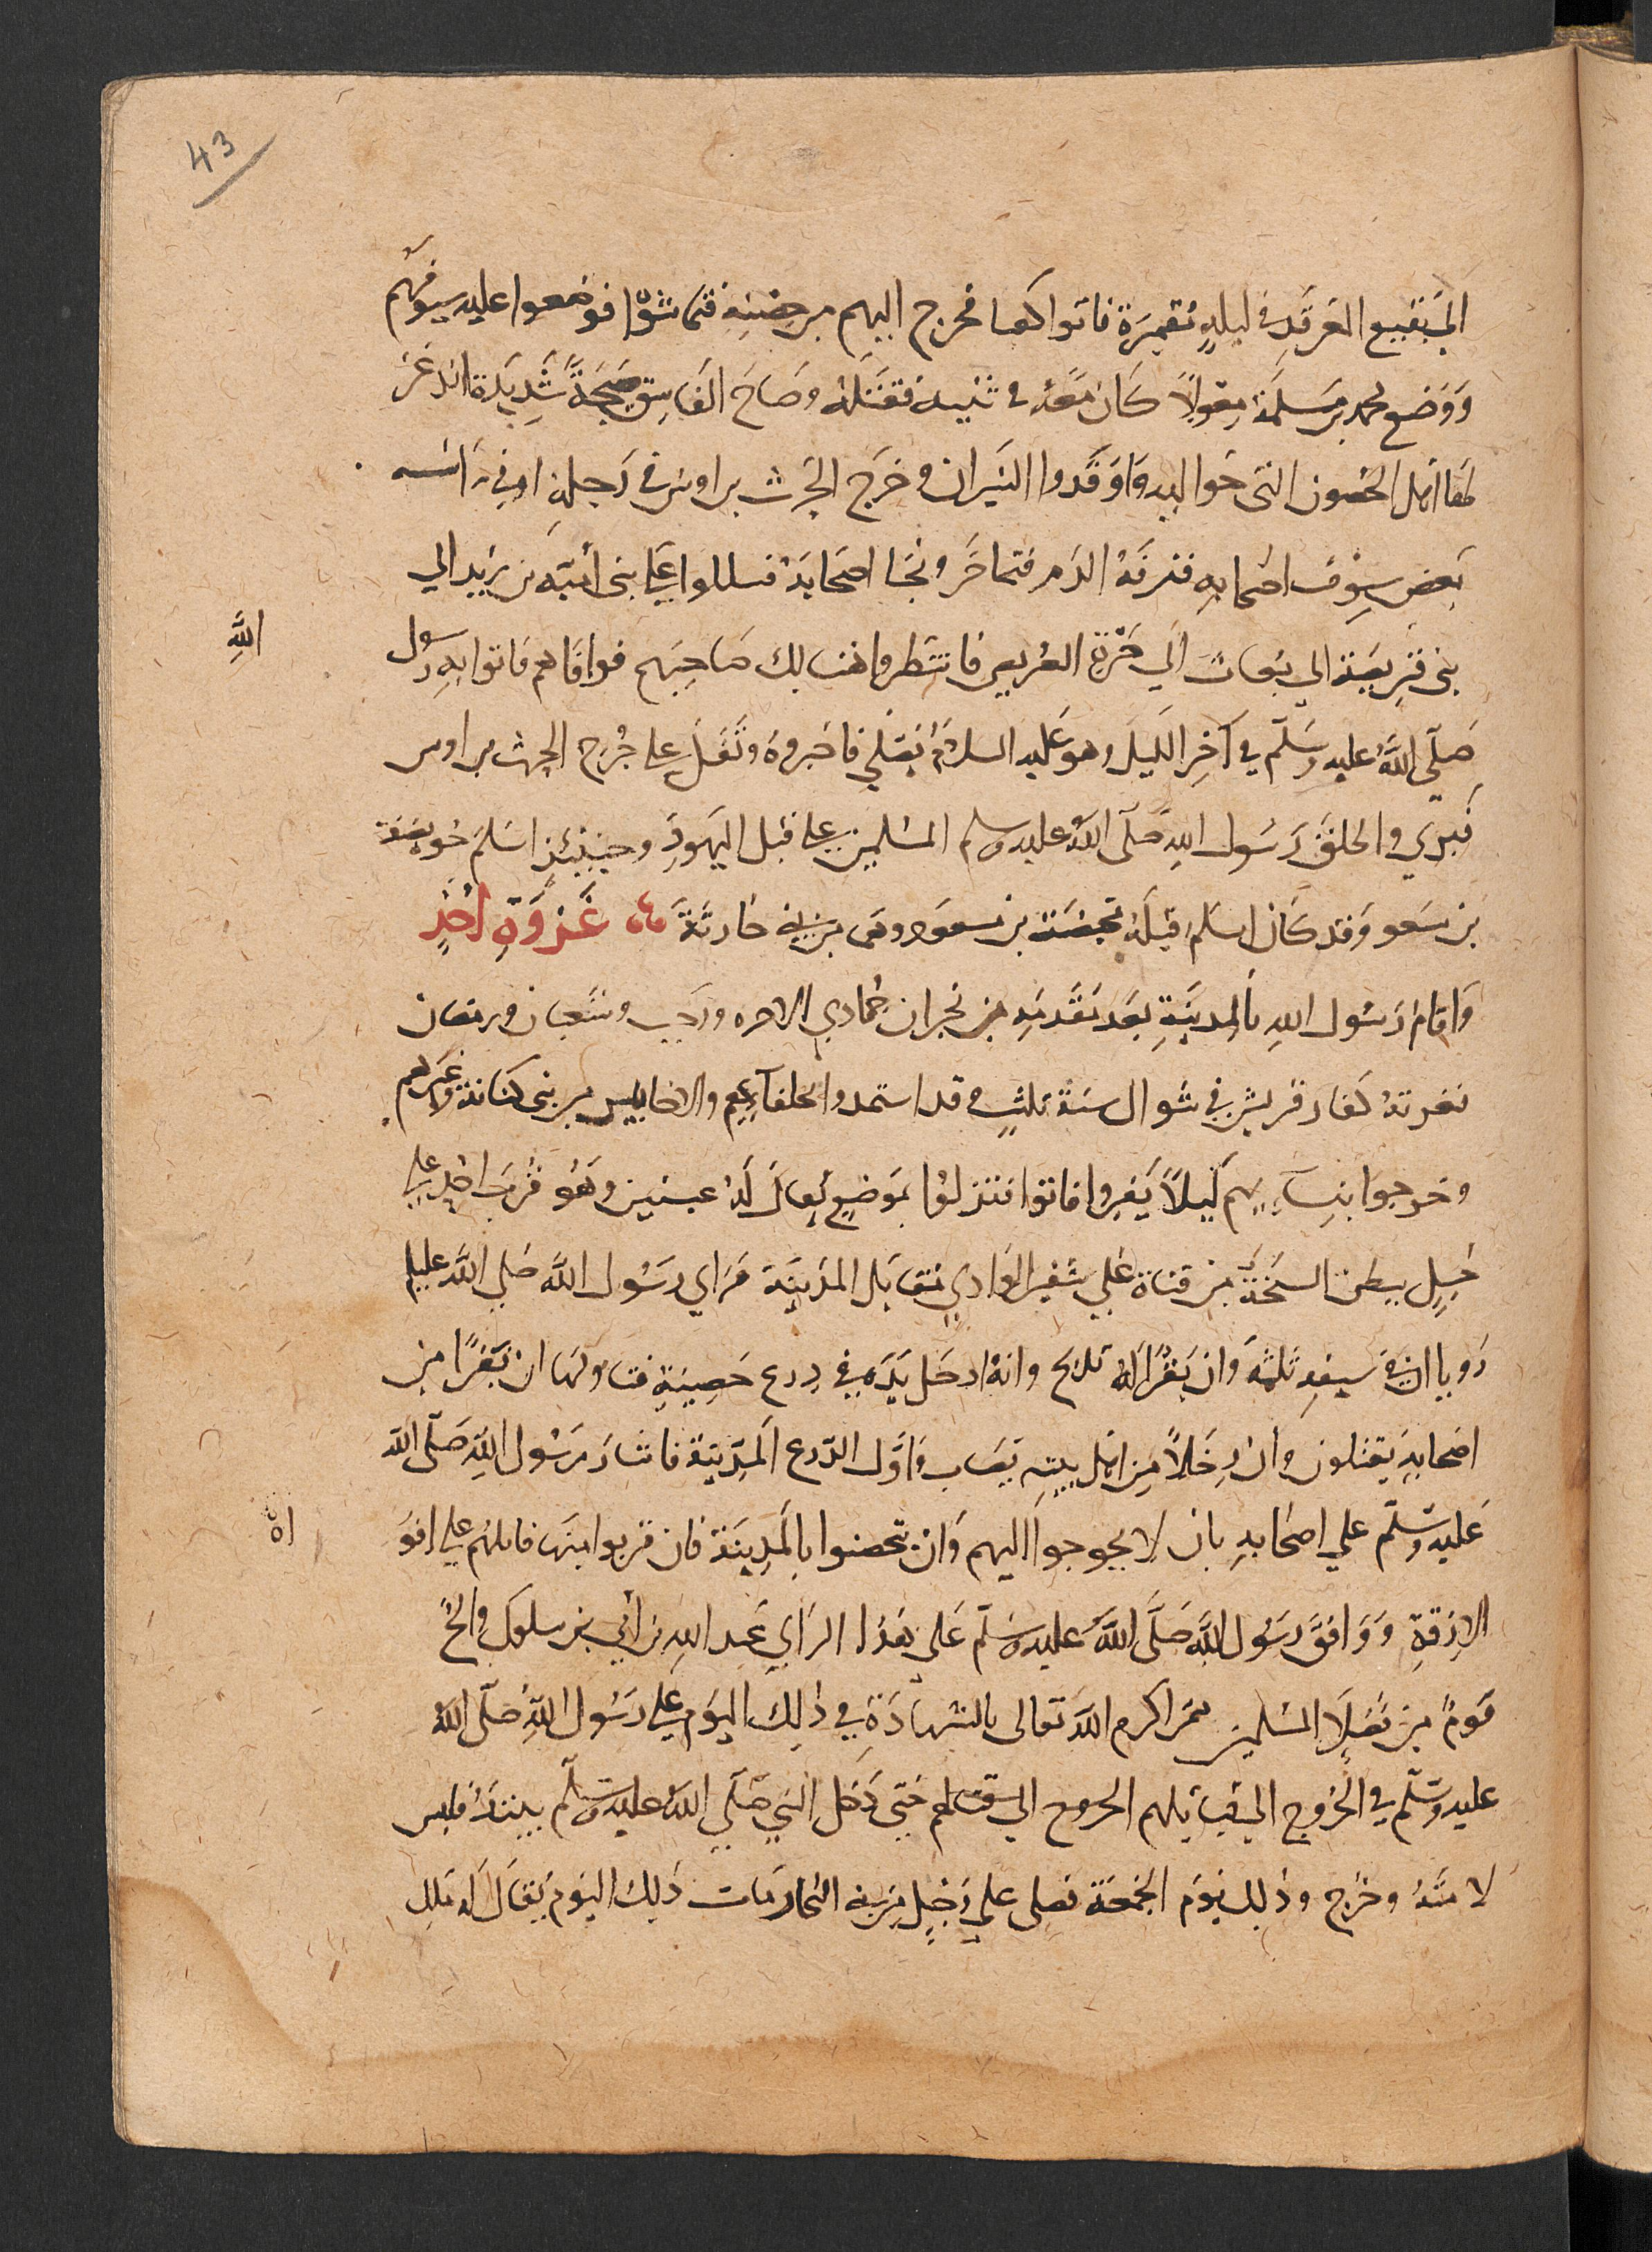 43
الي بقيع الغرقد في ليلة مقمرة فاتوا كعبا فخرج اليهم من حصنه فتماشوا فوضعوا عليه سيوفهم
ووضع محمد بن مسلمة مغولا كان معه في ثنيته فقتله وصاح الفاسق صيحة شديدة انذعر
لها اهل الحصون التي حواليه واوقدوا النيران وخرج الحرث بن اوس في رجله او في راسه
ببعض سيوف اصحابه فنزفه الدم فتاخر ونجا اصحابه فسلكوا على بني أمية بن زيد الي
بني قريظة الي بعاث الي حرة العريض فانتظروا هنالك صاحبهم فوافاهم فاتوا به رسول
الله
صلى الله عليه وسلم في آخر الليل وهو عليه السلام يصلي فاخبروه وتفل على جرح الحرث بن اوس
فبري واطلق رسول الله صلى الله عليه وسلم المسلمين على قتل اليهود وحينئذ اسلم حويصة
بن مسعود وقد كان اسلم قبله محيصة بن مسعود وهما من بني حارثة غزوة احد
واقام رسول الله بالمدينة بعد مقدمه من نجران جمادي الاخره ورجب وشعبان ورمضان
فغزته كفار قريش في شوال سنة ثلث وقد استمدوا بحلفآيهم والاحابيش من بني كنانة وغيرهم
وخرجوا بنسآيهم ليلا يفروا فاتوا فنزلوا بموضع يقال له عينين وهو قرب احد على
جبل ببطن السبخة من قناة على شفير الوادي مقابل المدينة فراي رسول الله صلى الله عليه
رويا ان في سيفه ثلمة وان بقرا له تذبح وانه ادخل يده في درع حصينة فتاولها ان نفرا من
اصحابه يقتلون وان رجلا من اهل بيته يصاب واول الدرع المدينة فاشار رسول الله صلى الله
عليه وسلم على اصحابه بان لا يخرجوا اليهم وان يتحصنوا بالمدينة فان قربوا منها قاتلهم على افواه
الازقة ووافق رسول الله صلى الله عليه وسلم على هذا الراي عبد الله بن ابي بن سلول والح
قوم من فضلا المسلمين ممن اكرم الله تعالى بالشهادة في ذلك اليوم على رسول الله صلى الله
عليه وسلم في الخروج الي قتالهم حتى دخل النبي صلى الله عليه وسلم بيته فلبس
لامته وخرج وذلك يوم الجمعة فصلى على رجل من بني النجار مات ذلك اليوم يقال له ملك